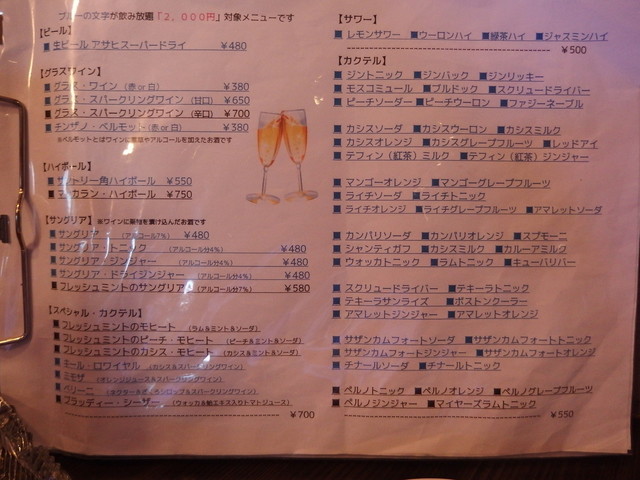 ブルーの文字が飲み放題「２，０００円」対象メニューです
【ビール】
■生ビール アサヒスーパードライ ￥480
【グラスワイン】
■グラス・ワイン（赤 or 白） ￥380
■グラス・スパークリングワイン（甘口） ￥650
■グラス・スパークリングワイン（辛口） ￥700
■チンザノ・ベルモット（赤 or 白） ￥380
※ベルモットとはワインに薬草やアルコールを加えたお酒です
【ハイボール】
■サントリー角ハイボール ￥550
■マッカラン・ハイボール ￥750
【サングリア】※ワインに果物を漬け込んだお酒です
■サングリア （アルコール7%） ￥480
■サングリア・トニック （アルコール分4%） ￥480
■サングリア・ジンジャー （アルコール分4%） ￥480
■サングリア・ドライジンジャー （アルコール分4%） ￥480
■フレッシュミントのサングリア （アルコール分7%） ￥580
【スペシャル・カクテル】
■フレッシュミントのモヒート （ラム&ミント&ソーダ）
■フレッシュミントのピーチ・モヒート （ピーチ&ミント&ソーダ）
■フレッシュミントのカシス・モヒート （カシス&ミント&ソーダ）
■モール・ロワイヤル （カシス&スパークリングワイン）
■ミモザ （オレンジジュース&スパークリングワイン）
■ベリーニ
■ブラッディー・シーザー （ウォッカ&蛤エキス入りトマトジュース）
￥700
【サワー】
■レモンサワー ■ウーロンハイ ■緑茶ハイ ■ジャスミンハイ
￥500
【カクテル】
■ジントニック ■ジンバック ■ジンリッキー
■モスコミュール ■ブルドック ■スクリュードライバー
■ピーチソーダー ■ピーチウーロン ■ファジーネーブル
■カシスソーダ ■カシスウーロン ■カシスミルク
■カシスオレンジ ■カシスグレープフルーツ ■レッドアイ
■テフィン（紅茶）ミルク ■テフィン（紅茶）ジンジャー
■マンゴーオレンジ ■マンゴーグレープフルーツ
■ライチソーダ ■ライチトニック
■ライチオレンジ ■ライチグレープフルーツ ■アマレットソーダ
■カンパリソーダ ■カンパリオレンジ ■スプモーニ
■シャンティガフ ■カシスミルク ■カルーアミルク
■ウォッカトニック ■ラムトニック ■キューバリバー
■スクリュードライバー ■テキーラトニック
■テキーラサンライズ ■ボストンクーラー
■アマレットジンジャー ■アマレットオレンジ
■サザンカムフォートソーダ ■サザンカムフォートトニック
■サザンカムフォートジンジャー ■サザンカムフォートオレンジ
■チナールソーダ ■チナールトニック
■ペルノトニック ■ペルノオレンジ ■ペルノグレープフルーツ
■ペルノジンジャー ■マイヤーズラムトニック
￥550